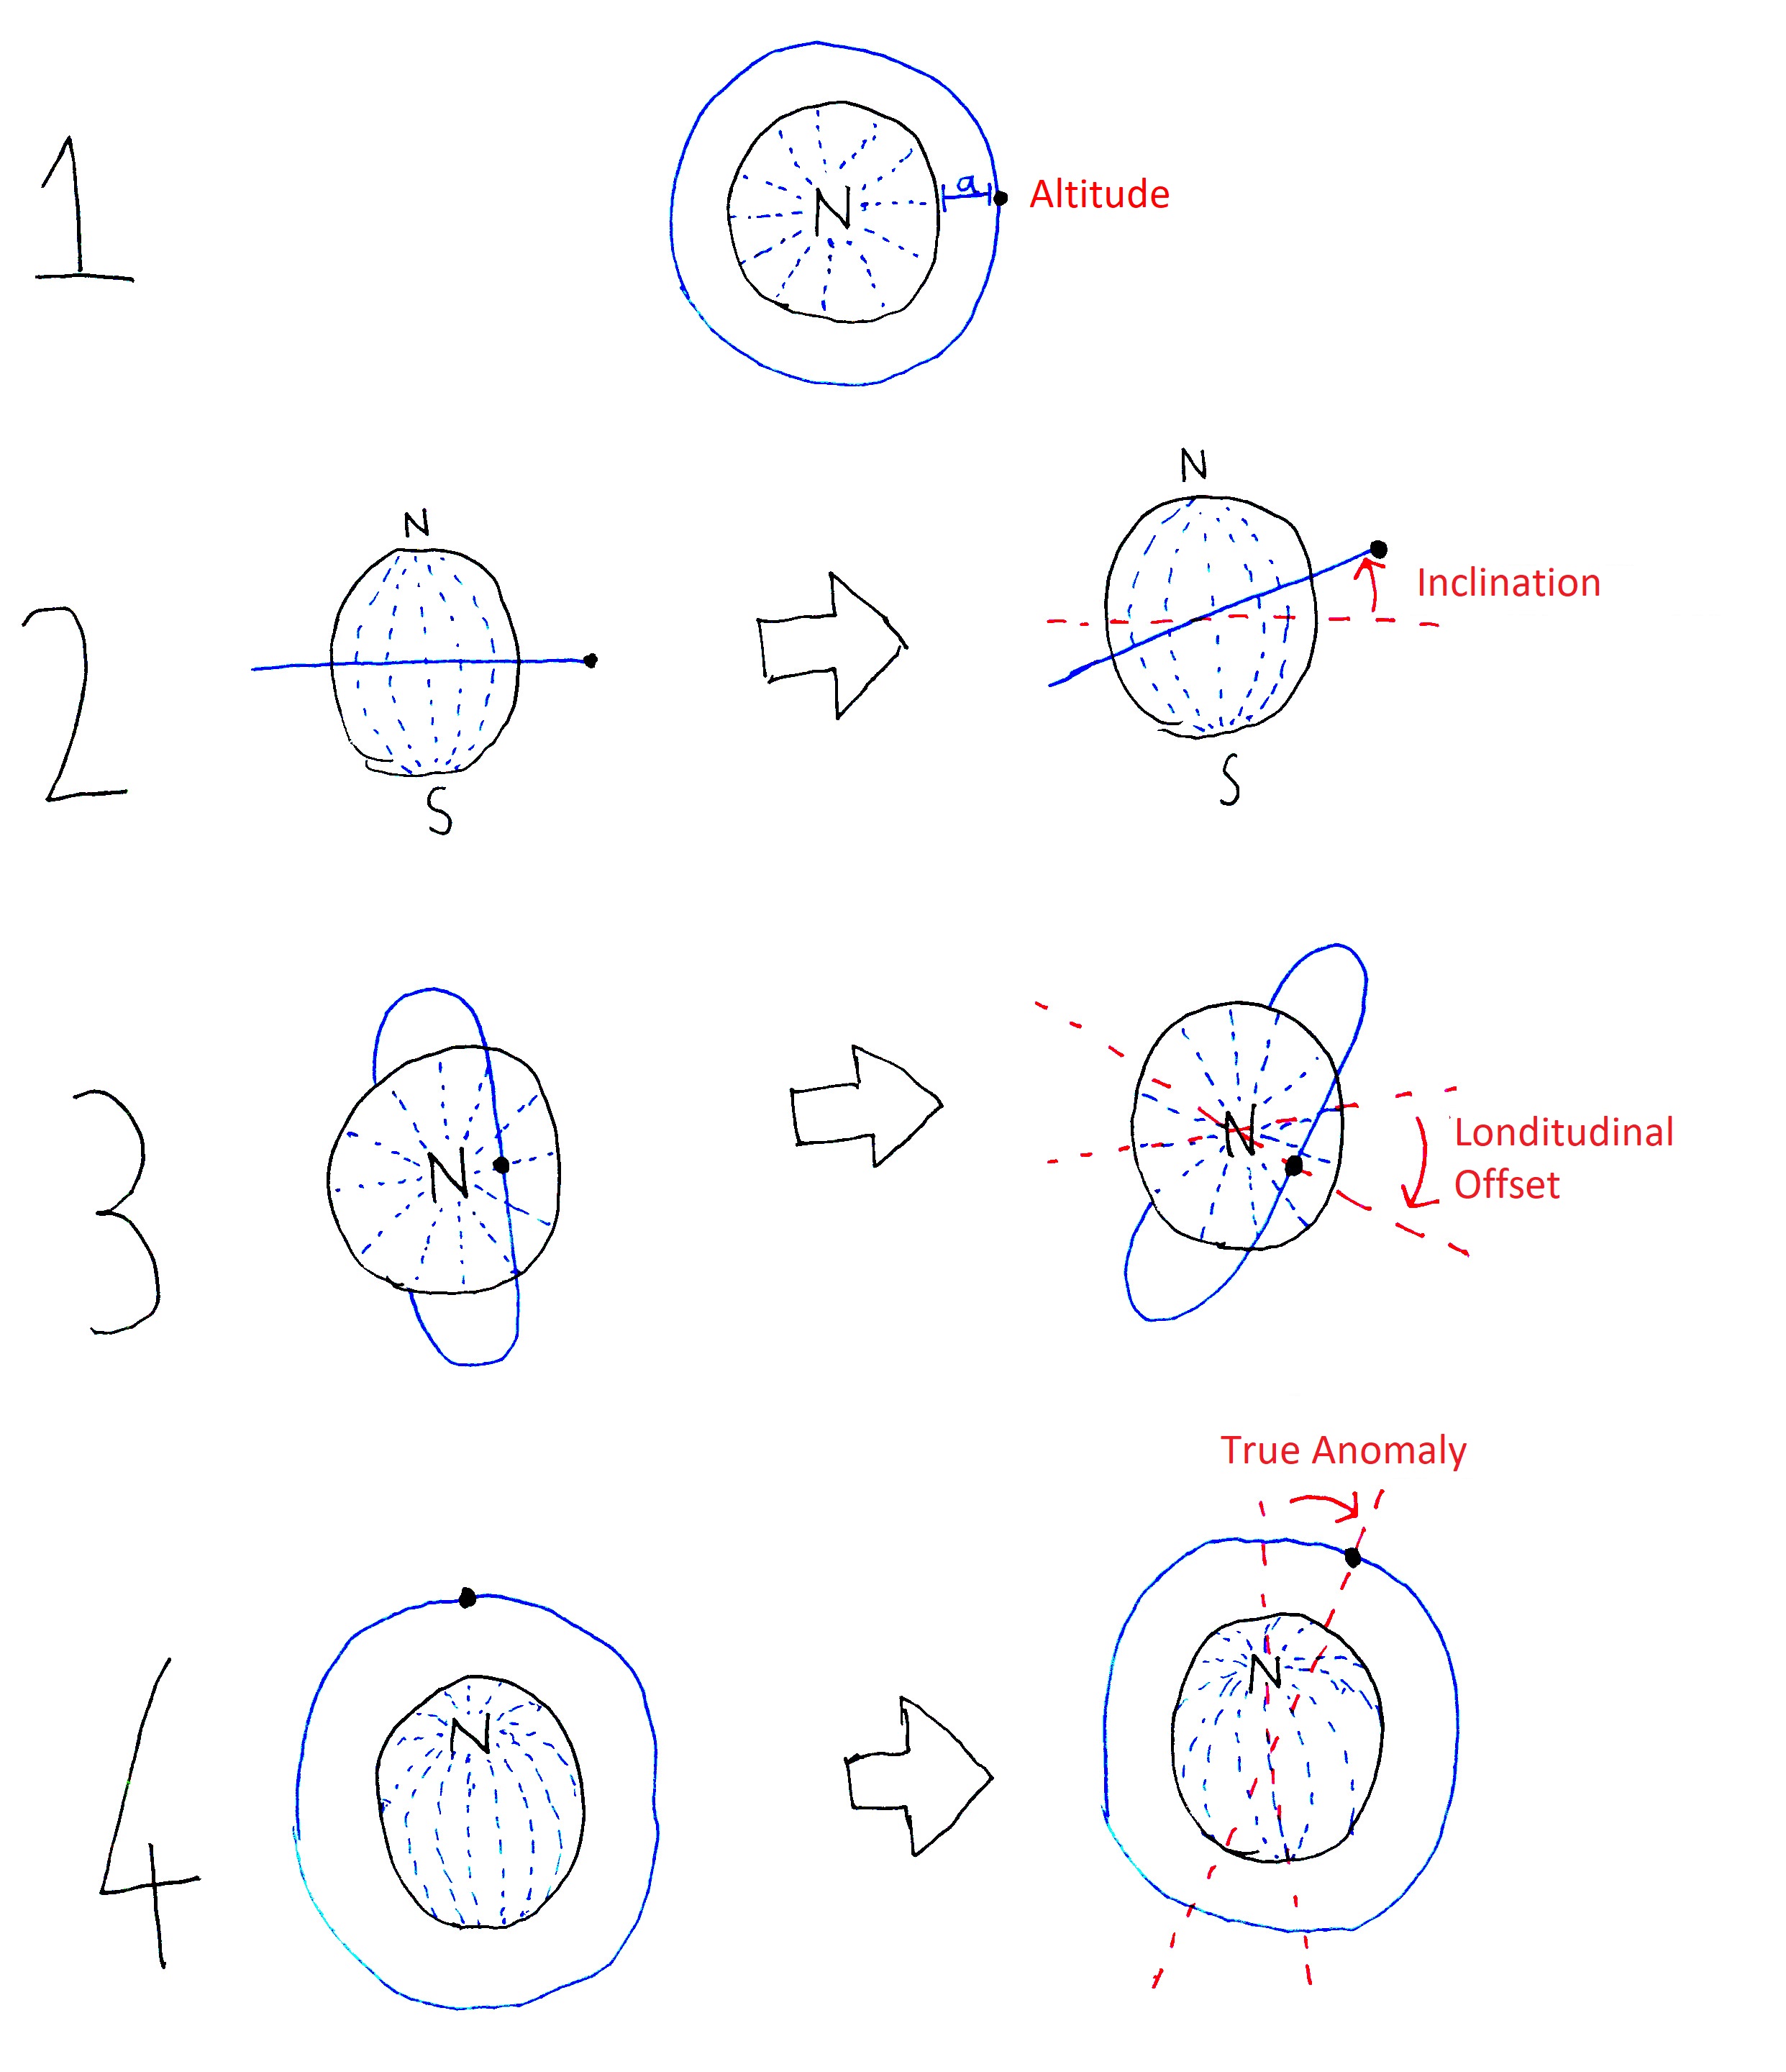 1
N
a
Altitude
2
N
S
N
Inclination
S
3
N
N
Londitudinal
Offset
4
N
True Anomaly
N